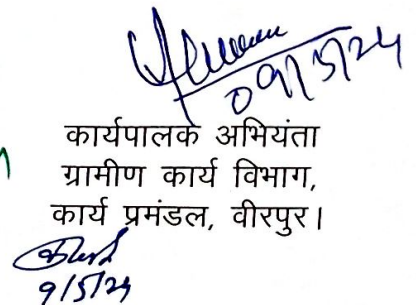 09/5/24
कार्यपालक अभियंता
ग्रामीण कार्य विभाग,
कार्य प्रमंडल, वीरपुर।
9/5/24